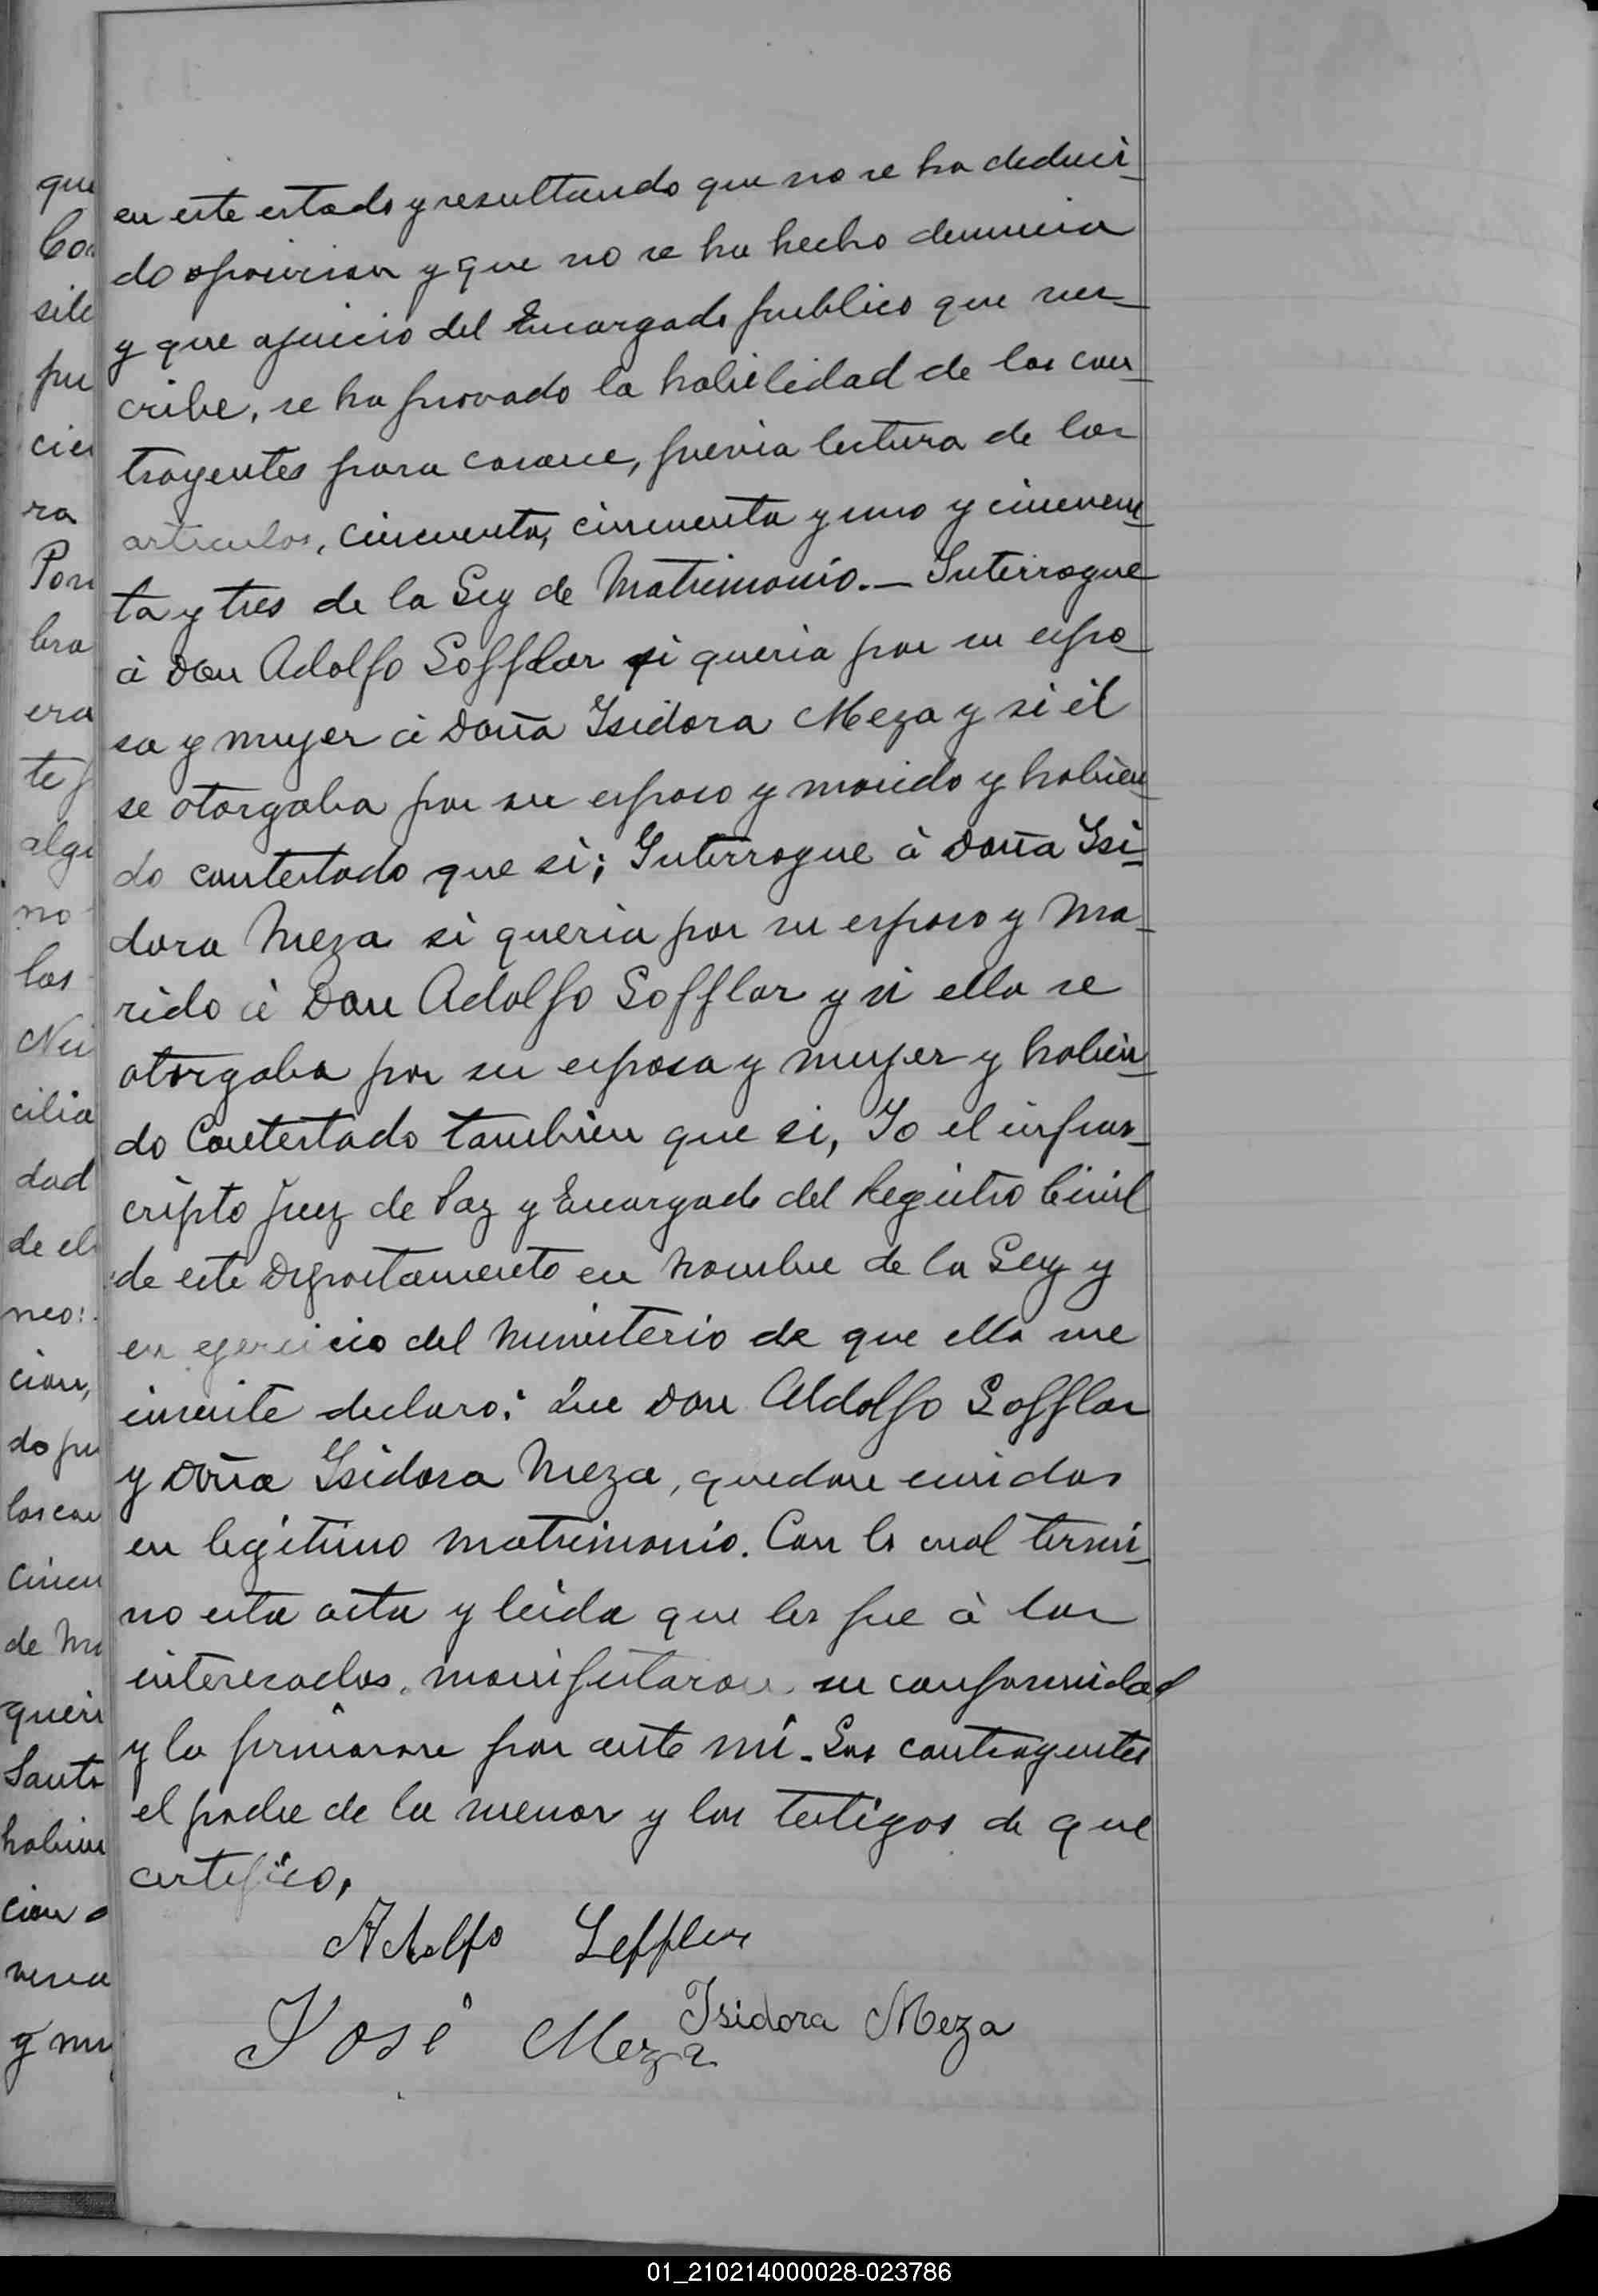 en este estado y resultando que no se ha deduci-
do oposicion y que no se ha hecho denuncia
y que ajuicio del Encargado publico que sus-
cribe, se ha provado la habilidad de los con-
trayentes para casarse, previa lectura de los
articulos, cincuenta, cincuenta y uno y cincuen-
ta y tres de la Ley de Matrimonio.- Interrogue
à Don Adolfo Lofflar si queria por su espo-
sa y mujer à Doña Isidora Meza y si él
se otorgaba por su esposo y marido y habien-
do contestado que si; Interrogue à Doña Isi-
dora Meza si queria por su esposo y ma-
rido à Don Adolfo Lofflar y si ella se
otorgaba por su esposa y mujer y habien-
do Contestado tambien que si, Yo el infras-
cripto Juez de Paz y Encargado del Registro Civil
de este Departamento en nombre de la Ley y
en ejercicio del Ministerio de que ella me
inviste declaro: Que Don Aldolfo Lofflar
y Doña Isidora Meza, quedan unidos
en legitimo matrimonio. Con lo cual termi-
no esta acta y leida que les fue à los
interesados, manifestaron su conformidad
y la firmaron por ante mi.- Los contrayentes
el padre de la menor y los testigos de que
certifico,
Adolfo Leffler
Isidora Meza
José Meza
que
Con
sile
pu
cien
ra
Pon
bra
era
te
alg
no
los
cilia
dad
de el
neo:
cion,
do pu
los con
Cincu
de
queri
Santo
habien
cion
y mu
01_210214000028-023786